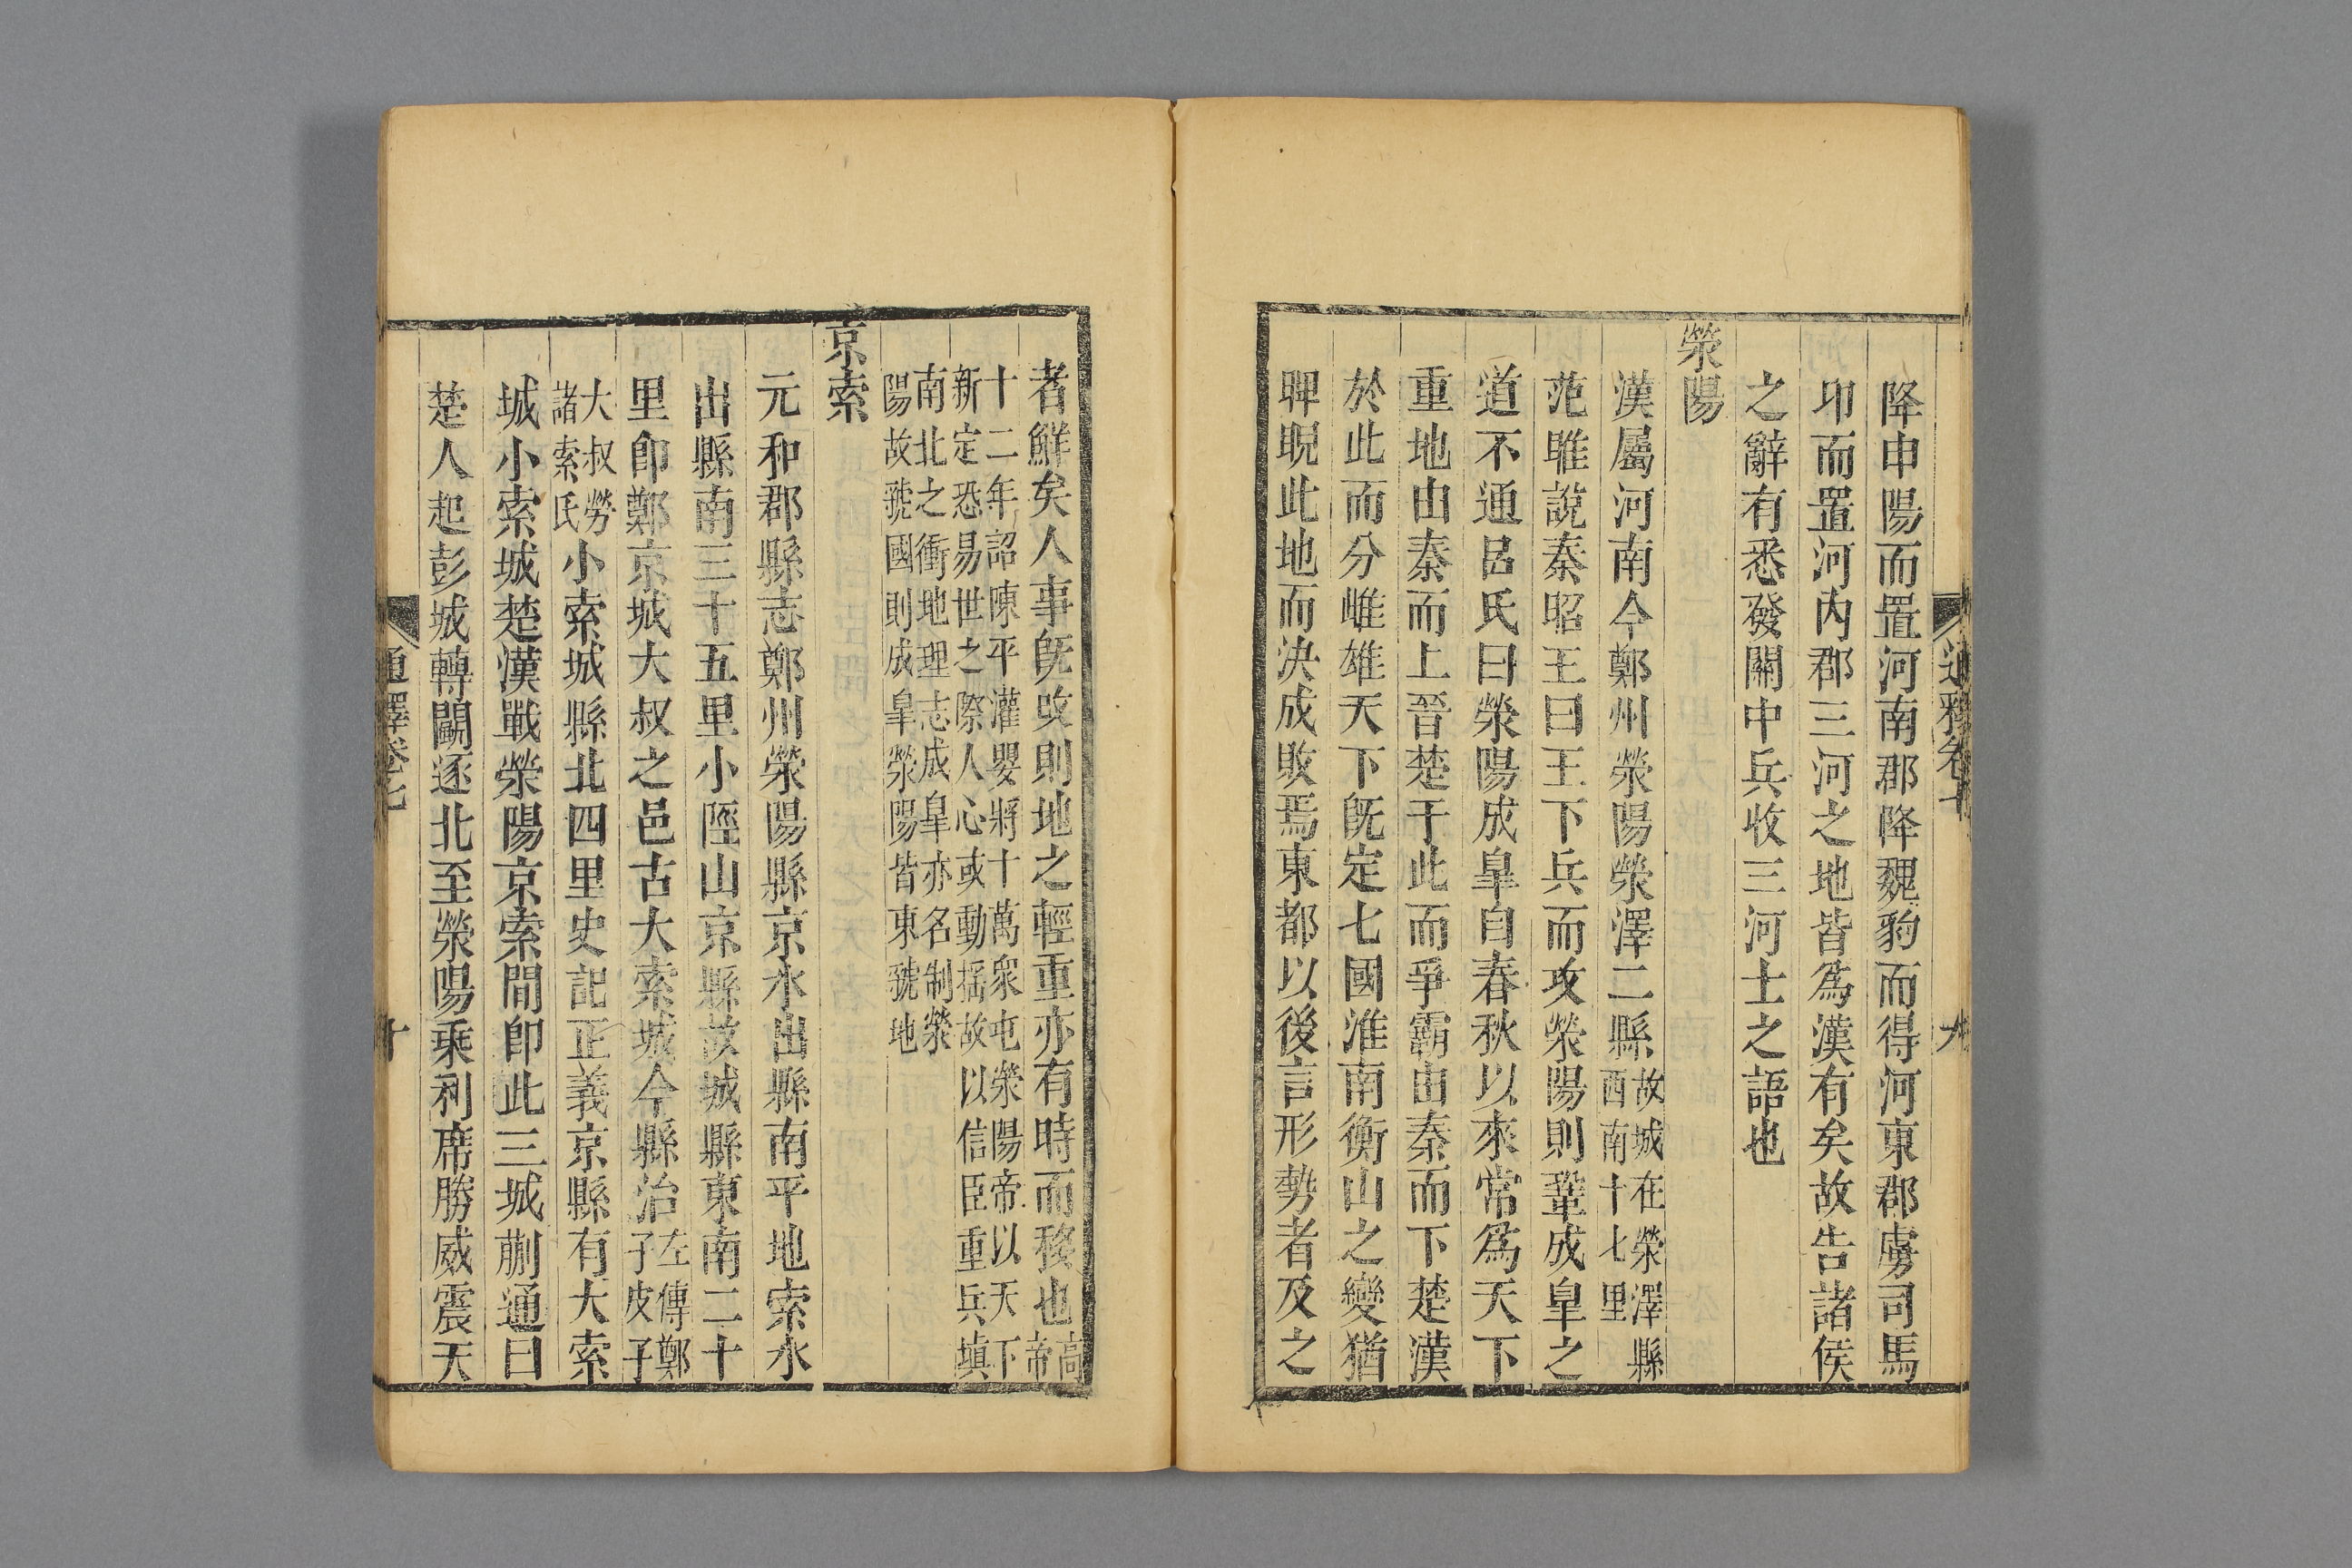 降申陽而置河南郡降魏豹而得河東郡虜司馬
卬而置河内郡三河之地皆為漢有矣故告諸侯
之辭有悉發關中兵收三河士之語也
滎陽
漢屬河南今鄭州滎陽滎澤二縣故城在滎澤縣西南十七里
范雎說秦昭王曰王下兵而攻滎陽則鞏成皐之
道不通呂氏曰滎陽成皐自春秋以來常為天下
重地由秦而上晉楚于此而爭霸由秦而下楚漢
於此而分雌雄天下既定七國淮南衡山之變猶
睥睨此地而決成敗焉東都以後言形勢者及之
者鮮矣人事既改則地之輕重亦有時而移也高帝
十二年詔陳平灌嬰將十萬眾屯滎陽帝以天下
新定恐易世之際人心或動揺故以信臣重兵塡
南北之衝地理志成皐亦名制滎
陽故虢國則成皐滎陽皆東虢地
京索
元和郡縣志鄭州滎陽縣京水出縣南平地索水
出縣南三十五里小陘山京縣故城縣東南二十
里卽鄭京城大叔之邑古大索城今縣治左傳鄭子皮子
大叔勞諸索氏小索城縣北四里史記正義京縣有大索
城小索城楚漢戰滎陽京索間卽此三城蒯通曰
楚人起彭城轉鬭逐北至滎陽乗利席勝威震天
通釋卷七
十